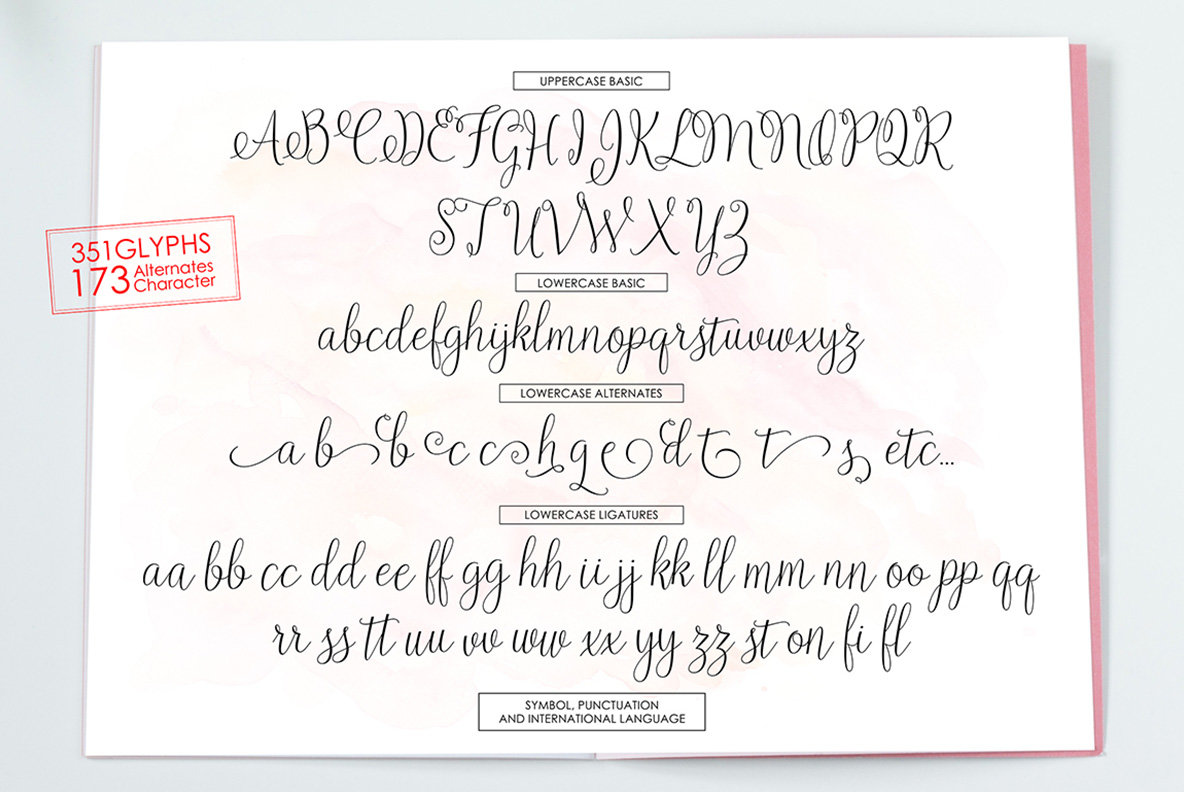 UPPERCASE BASIC
ABCDEFGHIJKLMNOPQR
STUVWXYZ
351GLYPHS
173 Alternates
Character
LOWERCASE BASIC
abcdefghijklmnopqrstuvwxyz
LOWERCASE ALTERNATES
a b b c c h g e d t t s etc...
LOWERCASE LIGATURES
aa bb cc dd ee ff gg hh ii jj kk ll mm nn oo pp qq
rr ss tt uu vv ww xx yy zz st on fi fl
SYMBOL, PUNCTUATION
AND INTERNATIONAL LANGUAGE